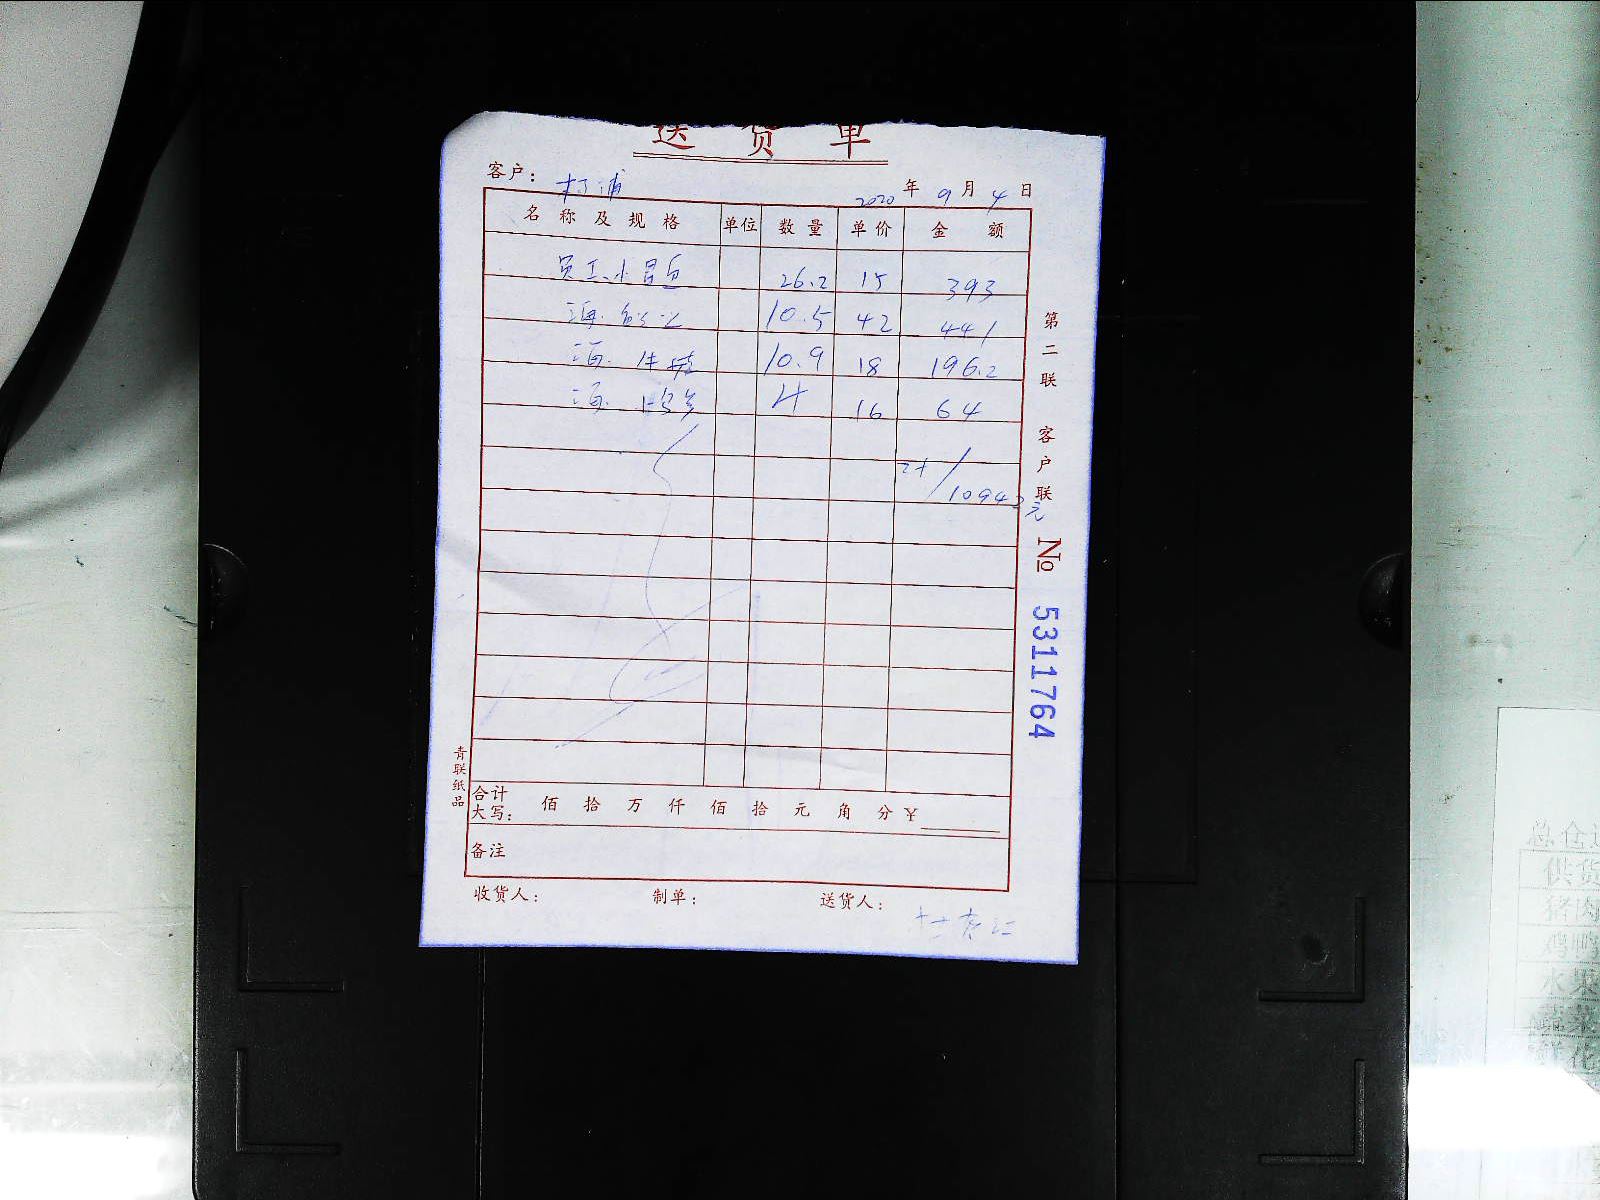 送货单
客户：
2020年9月4日
名称及规格 单位 数量 单价 金额
员工 26.2 15 393
海 10.5 42 441
海 10.9 18 196.2
海 4 16 64
计/1094.2元
合计大写： 佰 拾 万 仟 佰 拾 元 角 分 ￥
备注
收货人： 制单： 送货人：
第二联 客户联
No 5311764
青联纸品
总仓
供货
猪肉
鸡鸭
水果
蔬菜
鲜花